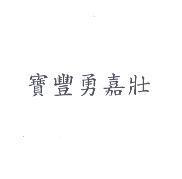 寶豐勇嘉壯